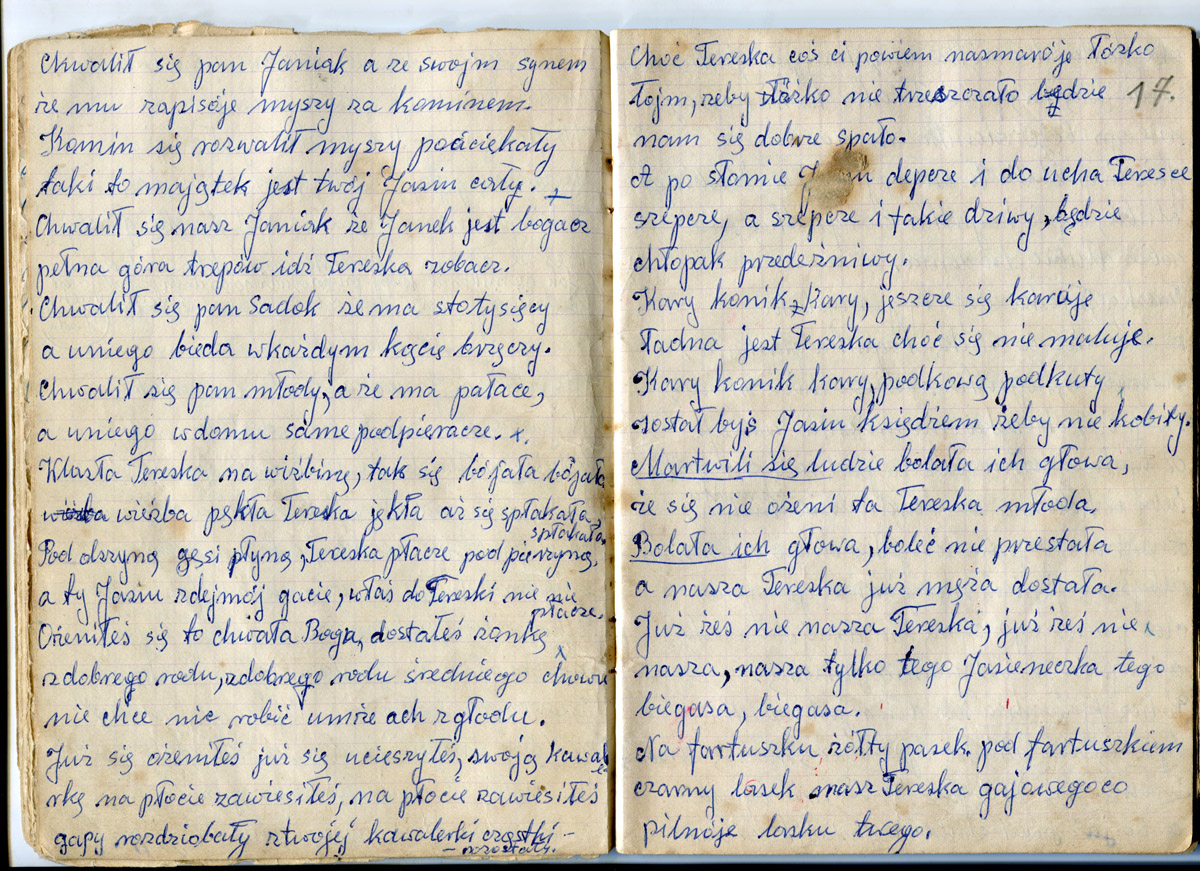 Chwalił się pan Janiak a ze swojm synem
że mu zapisóje myszy za kominem.
Komin się rozwalił myszy pościękały
taki to majątek jest twój Jasiu cały. +
Chwalił się nasz Janiak że Janek jest bogacz
pełna góra trepów idź Tereska zobacz.
Chwalił się pan Sadok że ma stotysięcy
a uniego bieda wkażdym kącię brzęczy.
Chwalił się pan młody, a że ma pałace,
a uniego wdomu same podpieracze. x.
Klasła Tereska na wiźbinę, tak się bojała bojała
wiźba pękła Tereska jękła aż się spłakała,
spłakała.
Pod olszyną gęsi płyną, Tereska płacze pod pierzyną,
a ty Jasiu zdejmój gacie, właś do Tereski nie
płacze.
Ożeniłeś się to chwała Boga, dostałeś żonkę
zdobrego rodu, zdobrego rodu średniego chowu
nie chce nic robić umże ach zgłodu.
Już się ożeniłeś już się ucieszyłeś, swoją kawale
rkę na płocie zawiesiłeś, na płocie zawiesiłeś
gapy rozdziobały ztwojej kawalerki cząstki
– pozostały. –
Choć Tereska coś ci powiem nasmarój e łóżko
łojm, żeby łóżko nie trzeszczało będzie 17.
nam się dobrze spało.
A po słomie depcze i do ucha Teresce
szepcze, a szepcze i takie dziwy, będzie
chłopak przedeżniwy.
Kary konik, kary, jeszcze się karóje
Ładna jest Tereska choć się nie maluje.
Kary konik kary, podkową podkuty,
został byś Jasiu księdzem żeby nie kobity.
Martwili się ludzie bolała ich głowa,
że się nie ożeni ta Tereska młoda.
Bolała ich głowa, boleć nie przestała
a nasza Tereska już męża dostała.
Już żeś nie nasza Tereska, już żeś nie
nasza, nasza tylko tego Jasieneczka tego
biegasa, biegasa.
Na fartuszku żółty pasek pod fartuszkiem
czarny lasek masz Tereska gajowego co
pilnóje lasku twego.